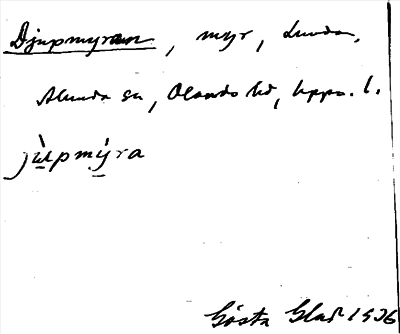 Djupmyran, myr, Lunda,
Alunda sn, Olands hd, Upps. l.
jùpmýra
Gösta Glad 1936